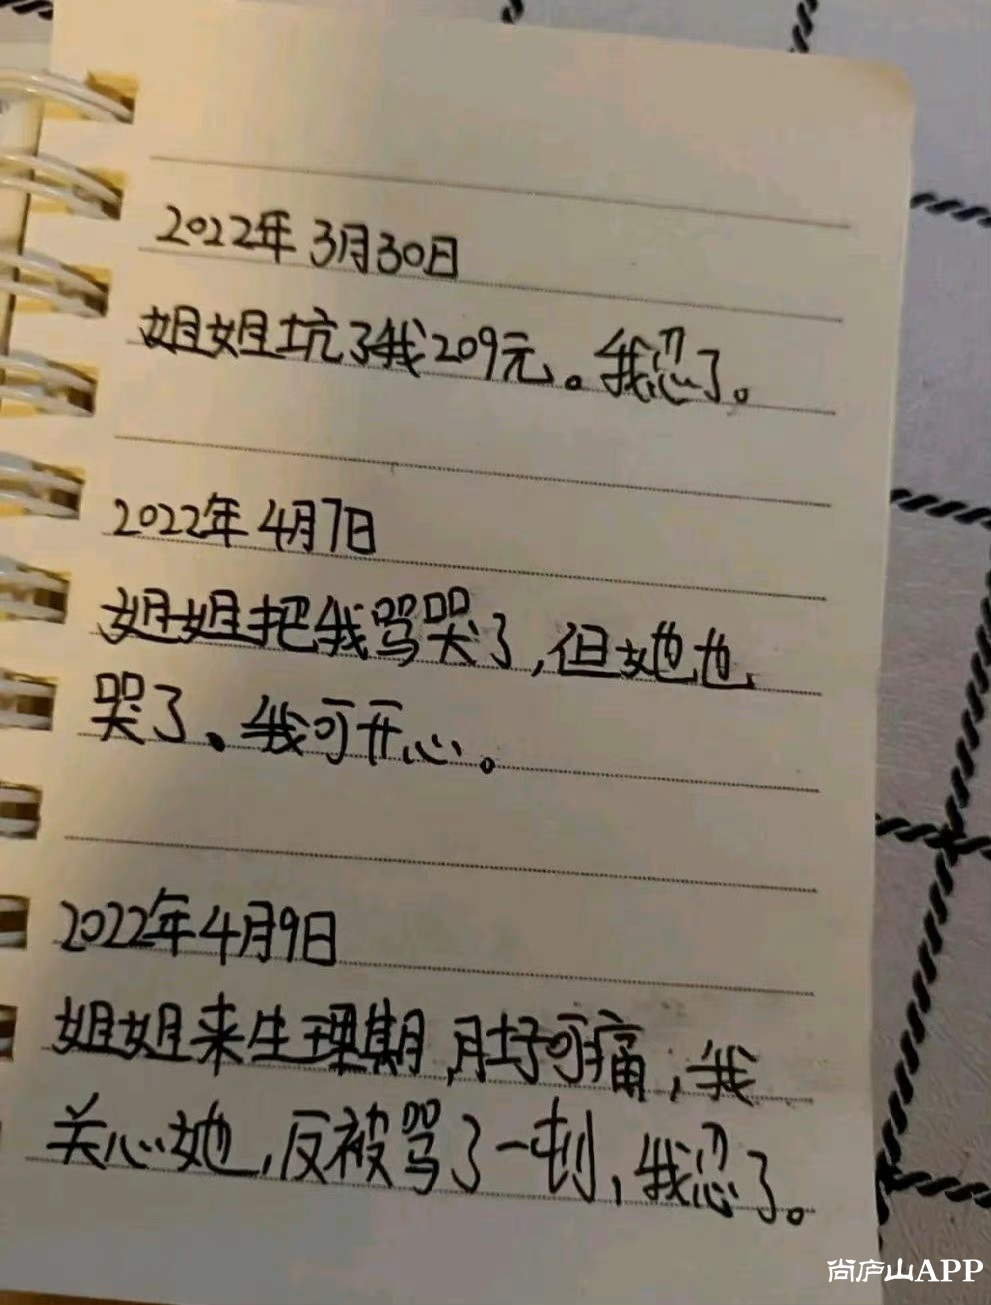 2022年3月30日
姐姐坑了我209元。我忍了。
2022年4月7日
姐姐把我骂哭了,但她也
哭了、我可开心。
2022年4月9日
姐姐来生理期,肚子可痛,我
关心她,反被骂了一顿,我忍了。
尚庐山APP